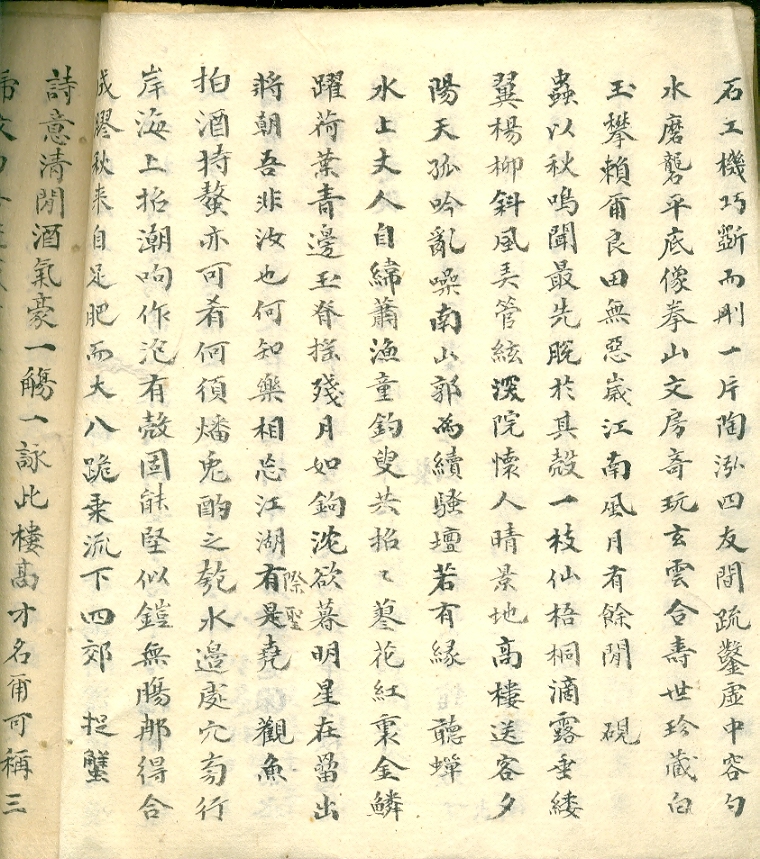 石工機巧斲而剛一片陶泓四友間疏鑿虛中容勺
水磨礱平底像拳山文房奇玩玄雲合壽世珍藏白
玉攀賴甫良田無惡歲江南風月有餘閒 硯
蟲以秋鳴聞最先脫於其殼一枝仙梧桐滴露垂緌
翼楊柳斜風弄管絃深院懷人晴景地高樓送客夕
陽天孤吟亂噪南山郭為續騷壇若有緣 聽蟬
水上丈人自緯蕭漁童釣叟共招〻蓼花紅裏金鱗
躍荷葉青邊玉脊搖殘月如鉤沈欲暮明星在罶出
將朝吾非汝也何知樂相忘江湖有是堯 觀魚
際聖
拍酒持螯亦可肴何須燔兔酌之匏水邊處穴旁行
岸海上招潮响作泡有殼固能堅似鎧無腸那得合
成膠秋来自足肥而大八跪乘流下四郊 捉蟹
詩意清閒酒氣豪一觴一詠此樓高才名甫可稱三